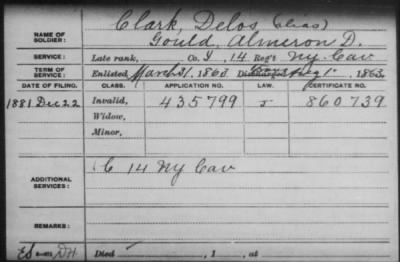 Clark, Delos (alias)
NAME OF SOLDIER: Gould, Almeron D.
SERVICE: Late rank, Co. I, 14 Reg't N.Y. Cav
TERM OF SERVICE: Enlisted March 31, 1863. Discharged Aug 1", 1863
DATE OF FILING. CLASS. APPLICATION NO. LAW. CERTIFICATE NO.
1881 Dec 22 Invalid, 435799 J 860739
Widow,
Minor,
C 14 NY Cav
ADDITIONAL SERVICES:
REMARKS:
Died , 1 , at